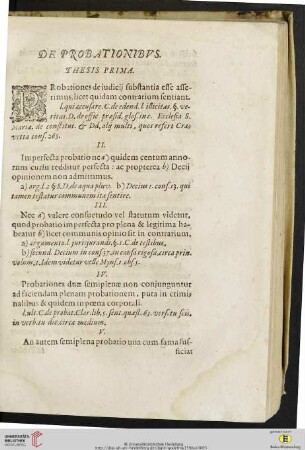 DE PROBATIONIBVS.
THESIS PRIMA.
PRobationes de judicij substantia esse asse-
rimus, licet quidam contrarium sentiant.
l. qui accusare. C. de edend. l. illicitas. §. ve-
ritas. D. de offic. præsid. glos. in c. Ecclesia S.
Mariæ. de constitut. & Dd. alij multi, quos refert Cra-
vetta cons. 265.
II.
Imperfecta probatio nec a) quidem centum anno-
rum cursu redditur perfecta: ac propterea b) Decij
opinionem non admittimus.
a) arg. l. 2 §. D. de aqua pluv. b) Decius i. cons. 13. qui
tamen testatur communem ita sentire.
III.
Nec a) valere consuetudo vel statutum videtur,
quod probatio imperfecta pro plena & legitima ha-
beatur b) licet communis opinio sit in contrarium,
a) argumento l. jurisjurandi. §. 1. C. de testibus,
b) secund. Decium in cons. 37.
volum. 1. Idem videtur velle Myns. 1. obs. 5.
IV.
Probationes duæ semiplenæ non conjunguntur
ad faciendam plenam probationem, puta in crimi
nalibus & quidem in pœna corporali.
l. ult. C. de probat. Clar. lib. 5. sent. quæst. 63. vers. tu scis.
in verbau duo. circa medium.
V.
An autem semiplena probatio una cum fama suf-
ficiat
UNIVERSITÄTS-
BIBLIOTHEK
HEIDELBERG
© Universitätsbibliothek Heidelberg